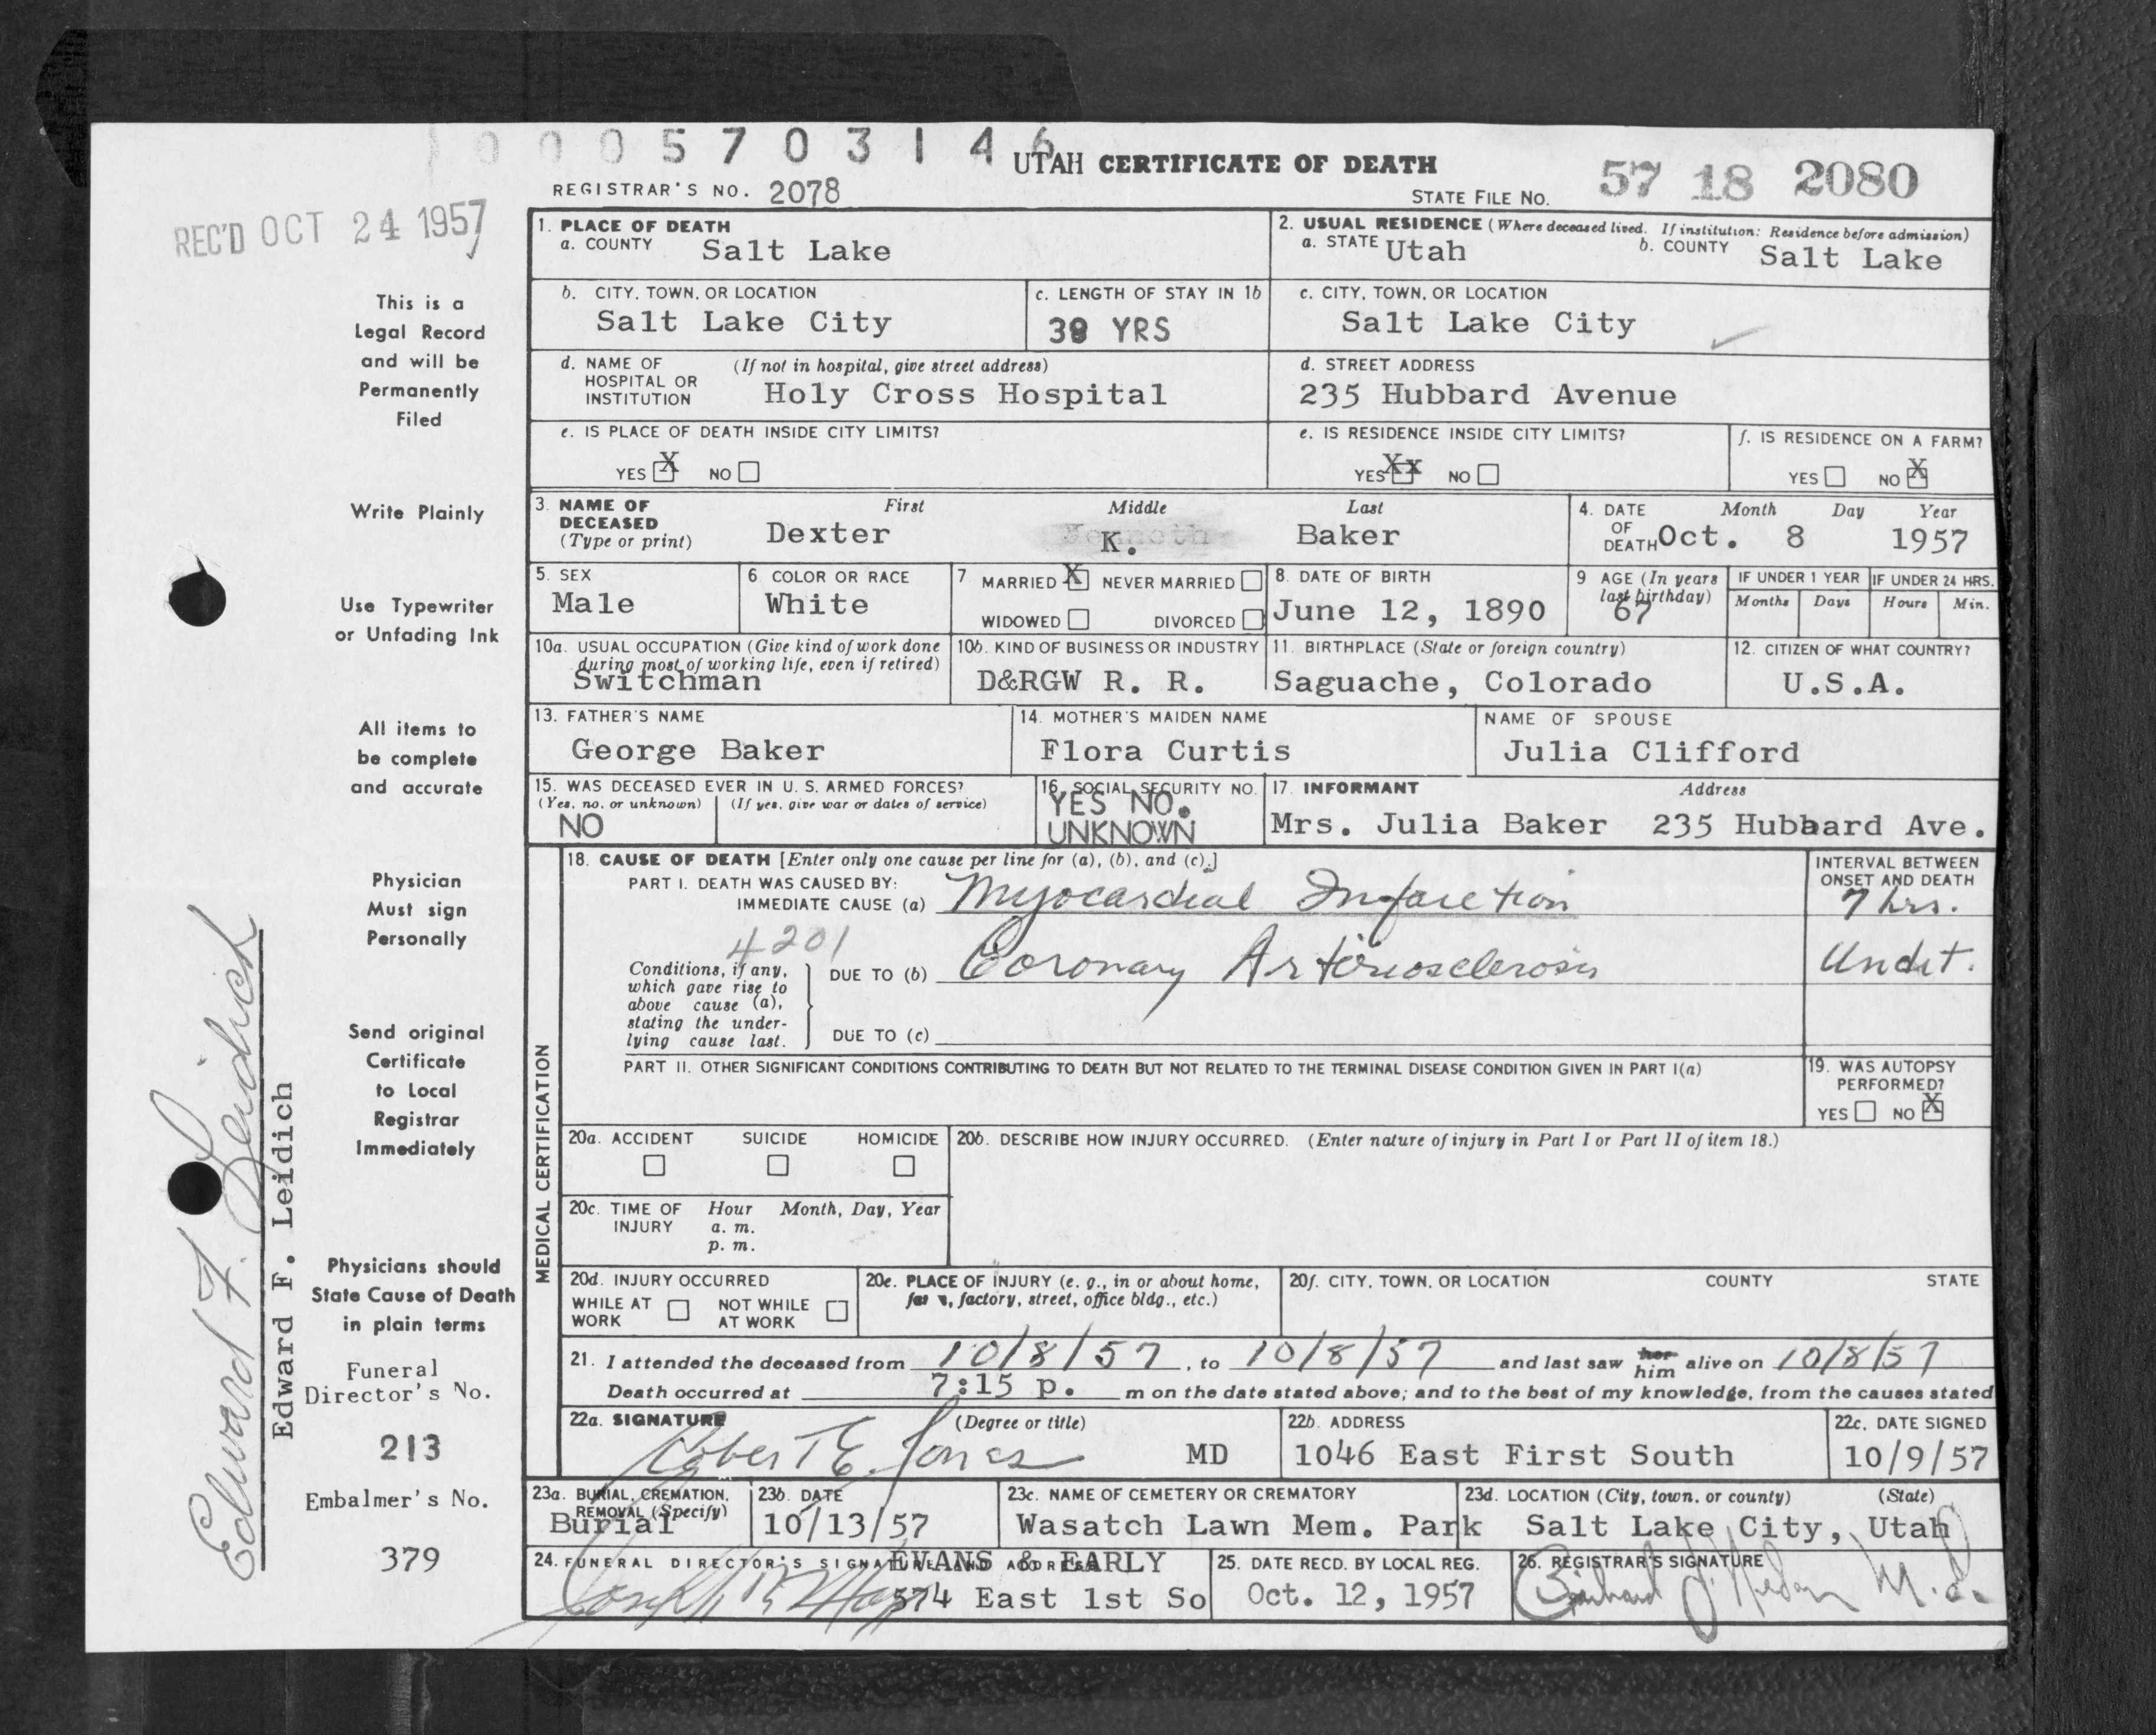 0005703146
UTAH CERTIFICATE OF DEATH
REGISTRAR'S NO. 2078
STATE FILE NO. 57 18 2080
REC'D OCT 24 1957
This is a
Legal Record
and will be
Permanently
Filed
Write Plainly
Use Typewriter
or Unfading Ink
All items to
be complete
and accurate
Physician
Must sign
Personally
Send original
Certificate
to Local
Registrar
Immediately
Physicians should
State Cause of Death
in plain terms
Funeral
Director's No.
213
Embalmer's No.
379
Edward F. Leidich
Edward F. Leidich
1. PLACE OF DEATH
a. COUNTY Salt Lake
2. USUAL RESIDENCE (Where deceased lived. If institution: Residence before admission)
a. STATE Utah b. COUNTY Salt Lake
b. CITY, TOWN, OR LOCATION
Salt Lake City
c. LENGTH OF STAY IN 1b
YRS
c. CITY, TOWN, OR LOCATION
Salt Lake City
d. NAME OF HOSPITAL OR INSTITUTION (If not in hospital, give street address)
Holy Cross Hospital
d. STREET ADDRESS
235 Hubbard Avenue
e. IS PLACE OF DEATH INSIDE CITY LIMITS?
YES X NO
e. IS RESIDENCE INSIDE CITY LIMITS?
YES Xx NO
f. IS RESIDENCE ON A FARM?
YES NO X
3. NAME OF DECEASED (Type or print)
First Middle Last
Dexter K. Baker
4. DATE OF DEATH Month Day Year
Oct. 8 1957
5. SEX
Male
6 COLOR OR RACE
White
7 MARRIED X NEVER MARRIED
WIDOWED DIVORCED
8. DATE OF BIRTH
June 12, 1890
9 AGE (In years last birthday)
67
IF UNDER 1 YEAR
Months Days
IF UNDER 24 HRS.
Hours Min.
10a. USUAL OCCUPATION (Give kind of work done during most of working life, even if retired)
Switchman
10b. KIND OF BUSINESS OR INDUSTRY
D&RGW R. R.
11. BIRTHPLACE (State or foreign country)
Saguache, Colorado
12. CITIZEN OF WHAT COUNTRY?
U.S.A.
13. FATHER'S NAME
George Baker
14. MOTHER'S MAIDEN NAME
Flora Curtis
NAME OF SPOUSE
Julia Clifford
15. WAS DECEASED EVER IN U. S. ARMED FORCES?
(Yes, no, or unknown) (If yes, give war or dates of service)
NO
16. SOCIAL SECURITY NO.
YES NO.
UNKNOWN
17. INFORMANT Address
Mrs. Julia Baker 235 Hubbard Ave.
MEDICAL CERTIFICATION
18. CAUSE OF DEATH [Enter only one cause per line for (a), (b), and (c).]
PART I. DEATH WAS CAUSED BY:
IMMEDIATE CAUSE (a) Myocardial Infarction
INTERVAL BETWEEN ONSET AND DEATH
7 hrs.
4201
Conditions, if any, which gave rise to above cause (a), stating the underlying cause last.
DUE TO (b) Coronary Arteriosclerosis
Undet.
DUE TO (c)
PART II. OTHER SIGNIFICANT CONDITIONS CONTRIBUTING TO DEATH BUT NOT RELATED TO THE TERMINAL DISEASE CONDITION GIVEN IN PART I(a)
19. WAS AUTOPSY PERFORMED?
YES NO X
20a. ACCIDENT SUICIDE HOMICIDE
20b. DESCRIBE HOW INJURY OCCURRED. (Enter nature of injury in Part I or Part II of item 18.)
20c. TIME OF INJURY Hour Month, Day, Year
a. m.
p. m.
20d. INJURY OCCURRED
WHILE AT WORK NOT WHILE AT WORK
20e. PLACE OF INJURY (e. g., in or about home, factory, street, office bldg., etc.)
20f. CITY, TOWN, OR LOCATION COUNTY STATE
21. I attended the deceased from 10/8/57, to 10/8/57 and last saw her him alive on 10/8/57
Death occurred at 7:15 p. m on the date stated above; and to the best of my knowledge, from the causes stated
22a. SIGNATURE (Degree or title)
Robert E. Jones MD
22b. ADDRESS
1046 East First South
22c. DATE SIGNED
10/9/57
23a. BURIAL, CREMATION, REMOVAL (Specify)
Burial
23b. DATE
10/13/57
23c. NAME OF CEMETERY OR CREMATORY
Wasatch Lawn Mem. Park
23d. LOCATION (City, town, or county) (State)
Salt Lake City, Utah
24. FUNERAL DIRECTOR'S SIGNATURE AND ADDRESS
EVANS & EARLY
574 East 1st So
25. DATE RECD. BY LOCAL REG.
Oct. 12, 1957
26. REGISTRAR'S SIGNATURE
M.D.